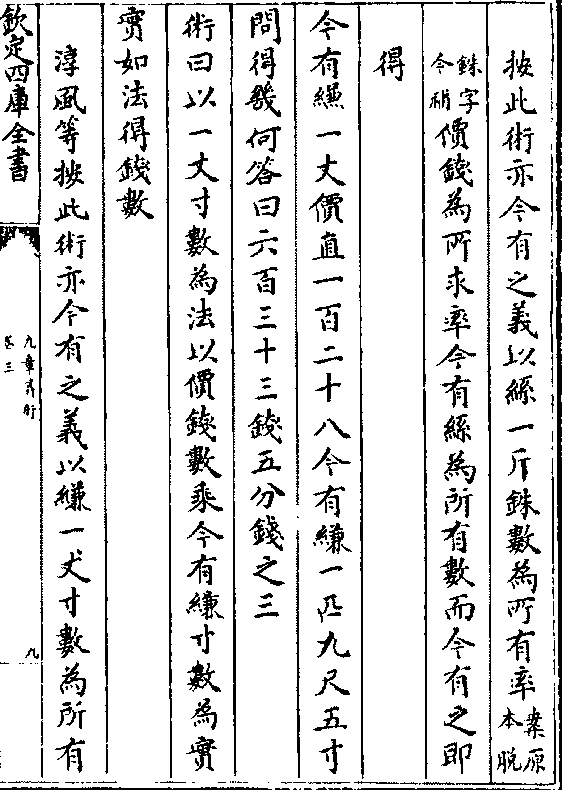 按此術亦今有之義以絲一斤銖數為所有率案原本脫
銖字今補價錢為所求率今有絲為所有數而今有之即
得
今有縑一丈價直一百二十八今有縑一匹九尺五寸
問得幾何答曰六百三十三錢五分錢之三
術曰以一丈寸數為法以價錢數乘今有縑寸數為實
實如法得錢數
淳風等按此術亦今有之義以縑一丈寸數為所有
欽定四庫全書
九章算術
卷三
九